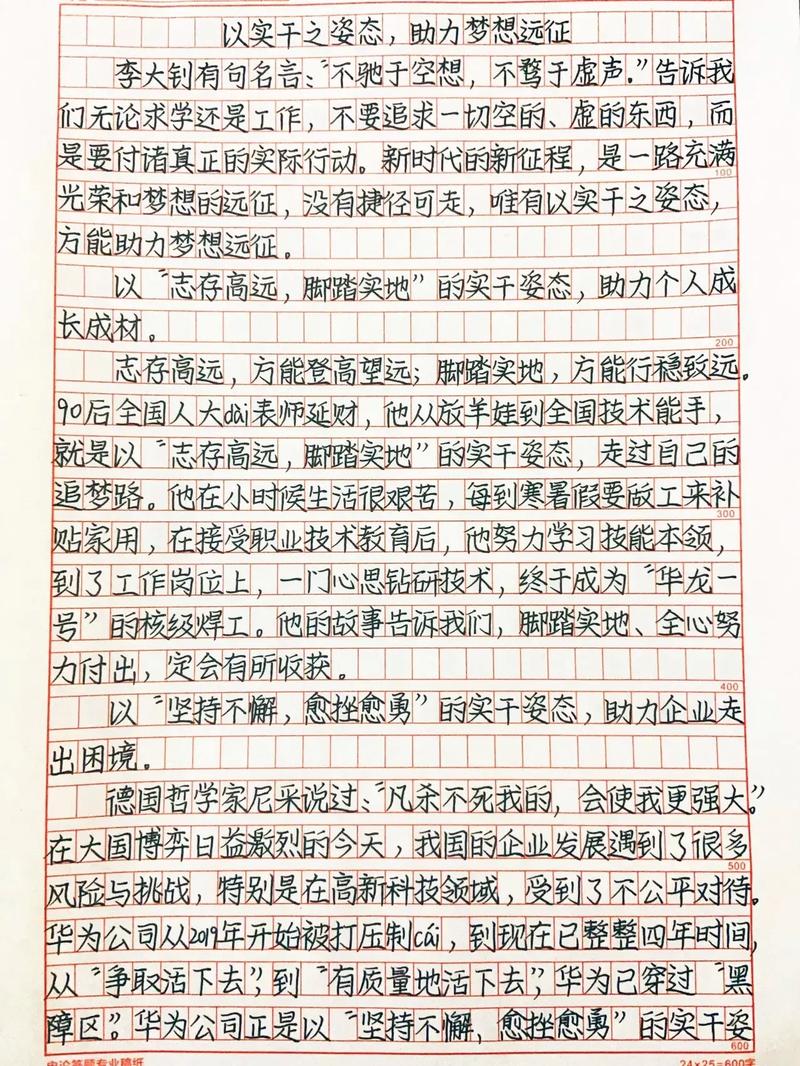 以实干之姿态，助力梦想远征
李大钊有句名言：“不驰于空想，不骛于虚声。”告诉我
们无论求学还是工作，不要追求一切空的、虚的东西，而
是要付诸真正的实际行动。新时代的新征程，是一路充满
100
光荣和梦想的远征，没有捷径可走，唯有以实干之姿态，
方能助力梦想远征。
以“志存高远，脚踏实地”的实干姿态，助力个人成
长成材。
200
志存高远，方能登高望远；脚踏实地，方能行稳致远。
90后全国人大dài表师延财，他从放羊娃到全国技术能手，
就是以“志存高远，脚踏实地”的实干姿态，走过自己的
追梦路。他在小时候生活很艰苦，每到寒暑假要做工来补
300
贴家用，在接受职业技术教育后，他努力学习技能本领，
到了工作岗位上，一门心思钻研技术，终于成为“华龙一
号”的核级焊工。他的故事告诉我们，脚踏实地、全心努
力付出，定会有所收获。
400
以“坚持不懈，愈挫愈勇”的实干姿态，助力企业走
出困境。
德国哲学家尼采说过：“凡杀不死我的，会使我更强大。”
在大国博弈日益激烈的今天，我国的企业发展遇到了很多
500
风险与挑战，特别是在高新科技领域，受到了不公平对待。
华为公司从2019年开始被打压制cái，到现在已整整四年时间，
从“争取活下去”，到“有质量地活下去”，华为已穿过“黑
障区”。华为公司正是以“坚持不懈，愈挫愈勇”的实干姿
600
申论答题专业稿纸
24×25=600字